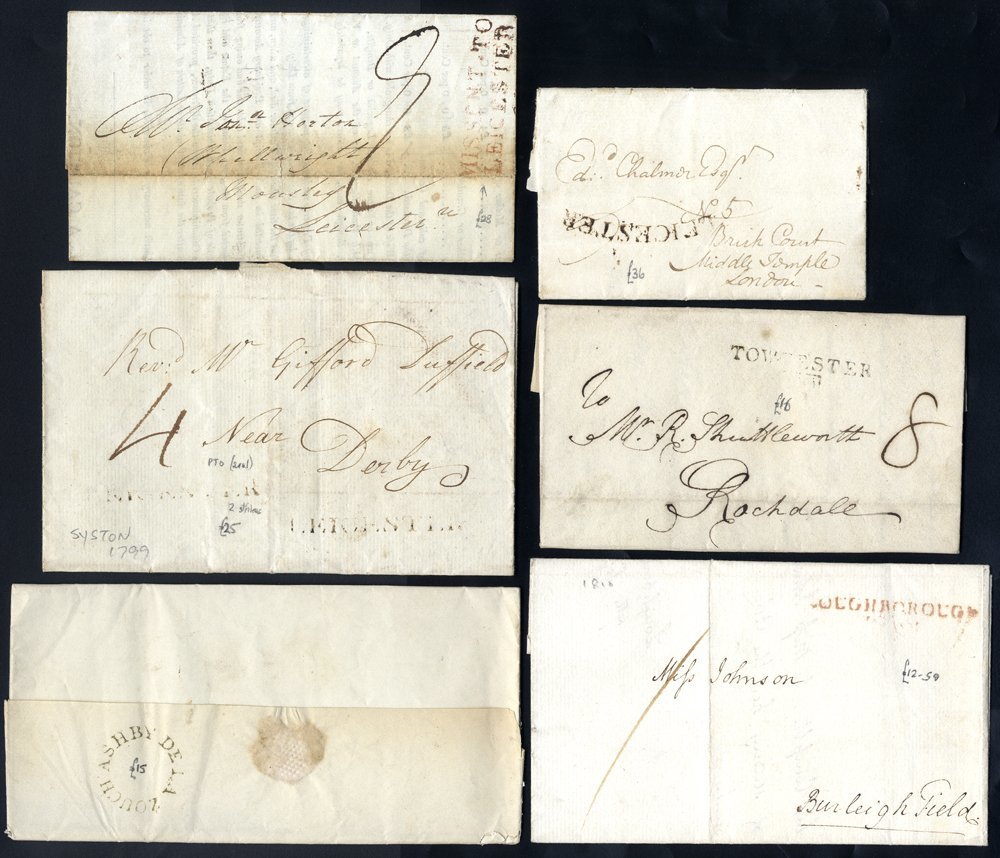 Mr. Jonan Horton
Whellwright
Mousley
Leicesterre
2
MISSENT-TO
LEICESTER
£28
Edd. Chalmer Esqr.
No. 5
Brick Court
Middle Temple
London
EICESTER
£36
Revd. Mr Gifford Duffield
4
Near
Derby
PTO (2nd)
2 strikes
£25
SYSTON
1799
TOWCESTER
£16
To
Mr. R. Shuttleworth
8
Rochdale
ASHBY DE LA
ZOUCH
£15
1810
OUGHBOROUGH
Miss Johnson
£12-50
Burleigh Field